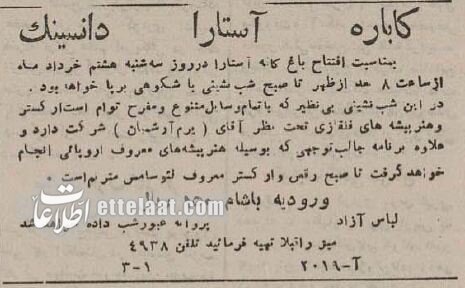 کاباره آستارا دانسینك
بمناسبت افتتاح باغ کافه آستارا در روز سه‌شنبه هشتم خرداد ماه
از ساعت ۸ بعد از ظهر تا صبح شب نشینی با شکوهی برپا خواهد بود .
در این شب‌نشینی بی‌نظیر که با تمام وسایل متنوع و مفرح توام است ارکستر
و هنرپیشه های قفقازی تحت نظر آقای ( برم آرشمان ) شرکت دارد و
علاوه برنامه جالب توجهی که بوسیله هنرپیشه‌های معروف اروپائی انجام
خواهد گرفت تا صبح رقص و ارکستر معروف لتوسامس مترنم است .
ورودیه باشام
لباس آزاد پروانه عبور شب داده
میز را قبلا تهیه فرمائید تلفن ۴۹۳۸
آ-۲۰۱۹ ۳-۱
اطلاعات ettelaat.com